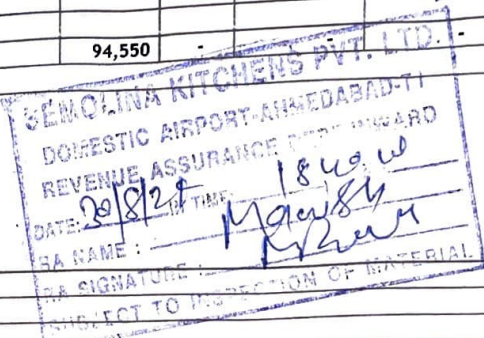 94,550 - - -
SEMOLINA KITCHENS PVT. LTD.
DOMESTIC AIRPORT-AHMEDABAD-T1
REVENUE ASSURANCE INWARD
DATE: 30/8/24 IN TIME:
RA NAME : Manish
RA SIGNATURE :
SUBJECT TO INSPECTION OF MATERIAL